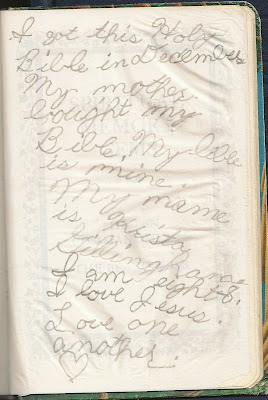 I got this Holy
Bible in December
My mother
bought my
Bible. My bible
is mine.
My name
is Krista
Gillingham.
I am eight 8.
I love Jesus.
Love one
another.